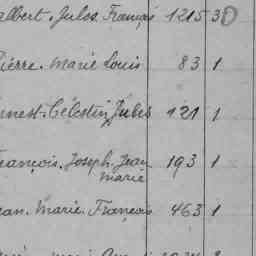 albert. Jules. Français 1215 30
ierre. Marie Louis 83 1
nest. Célestin Jules 121 1
rançois. Joseph. Jean 193 1
Marie
ean. Marie. François 463 1